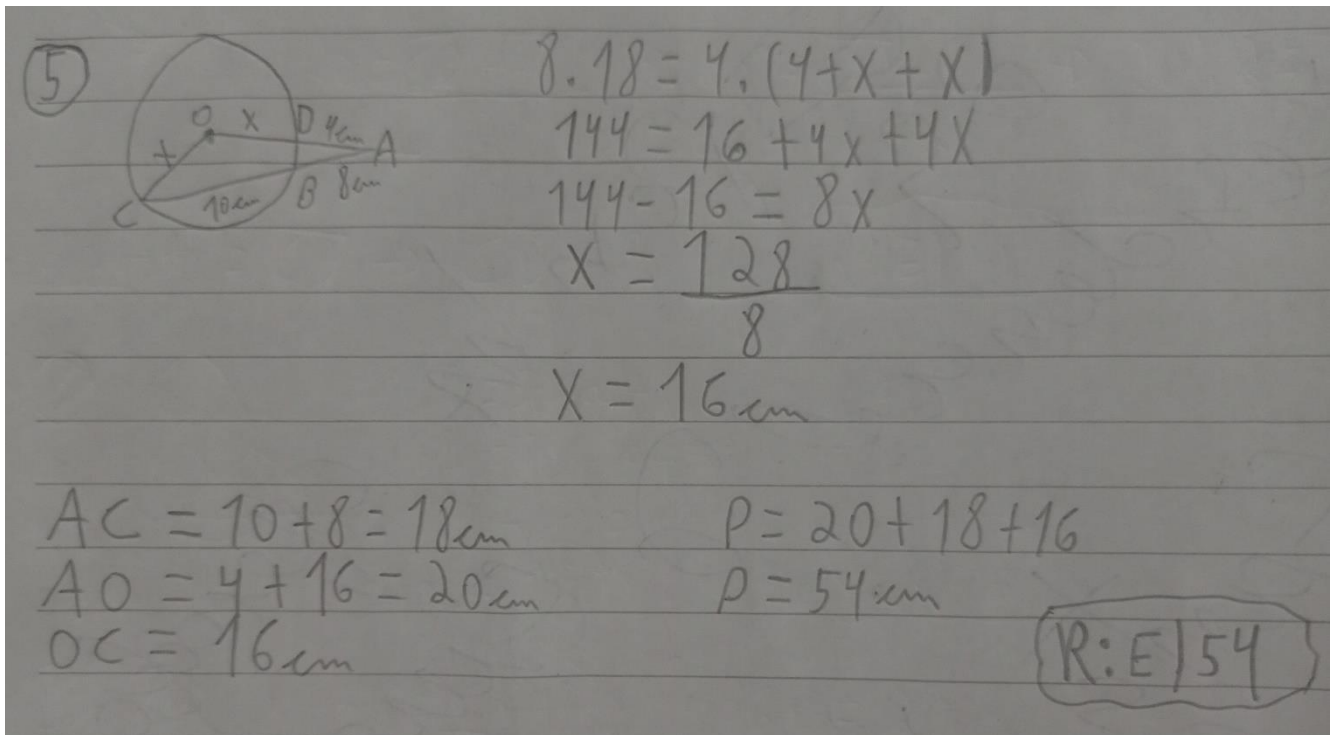 5
O x D 4cm A
x
C 10cm B 8cm
8.18 = 4.(4+x+x)
144 = 16 + 4x + 4x
144 - 16 = 8x
x = 128
8
x = 16cm
AC = 10 + 8 = 18cm
AO = 4 + 16 = 20cm
OC = 16cm
P = 20 + 18 + 16
P = 54cm
R: E) 54